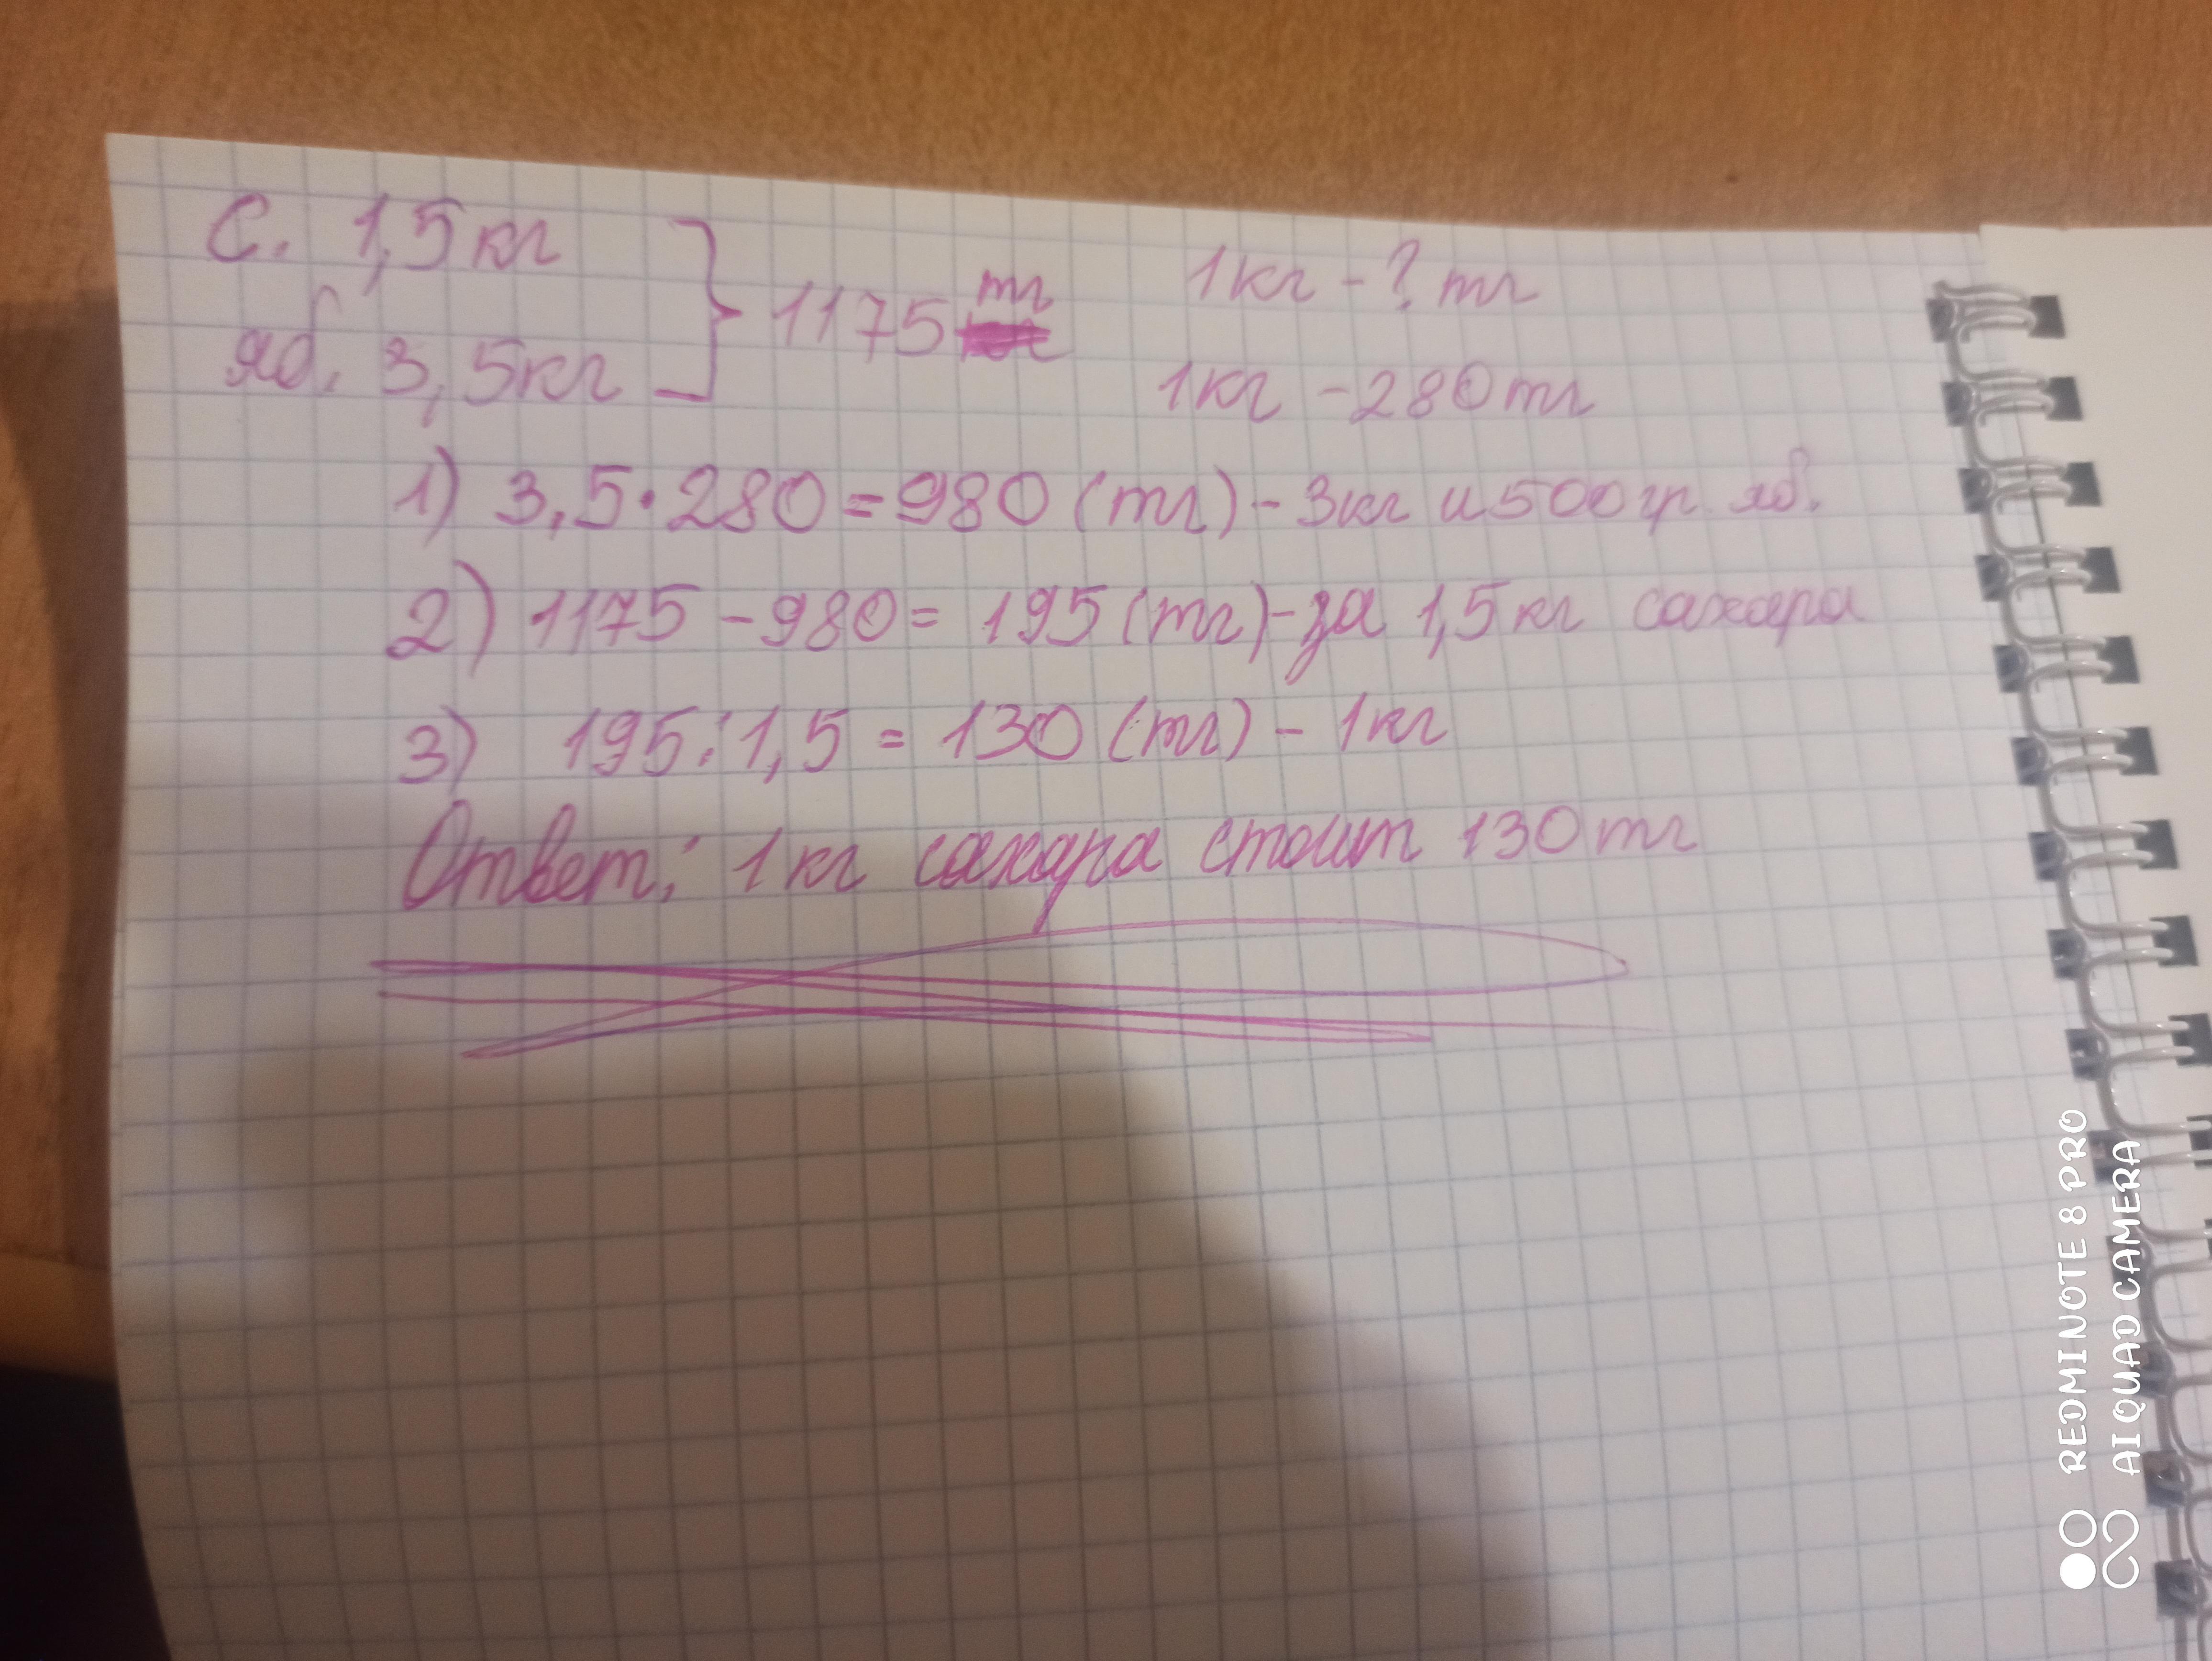 С. 1,5 кг
яб. 3,5 кг
} 1175 тг
1 кг - ? тг
1 кг - 280 тг
1) 3,5 · 280 = 980 (тг) - 3 кг и 500 гр. яб.
2) 1175 - 980 = 195 (тг) - за 1,5 кг сахара
3) 195 : 1,5 = 130 (тг) - 1 кг
Ответ: 1 кг сахара стоит 130 тг
REDMI NOTE 8 PRO
AI QUAD CAMERA